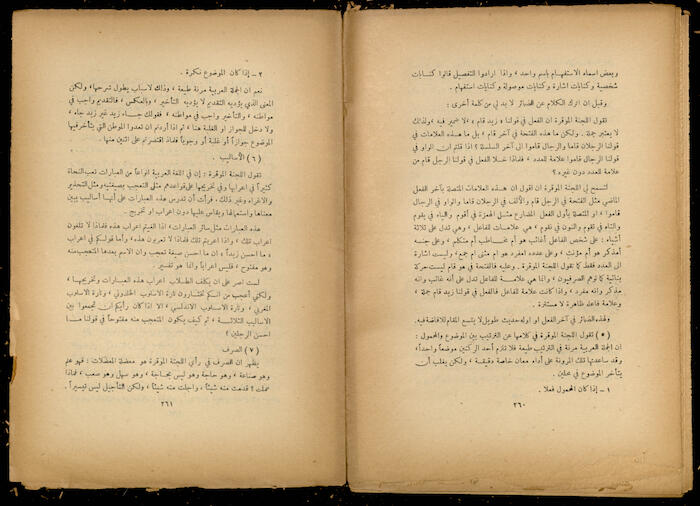 وبعض اسماء الاستفهام باسم واحد ، واذا ارادوا التفصيل قالوا كنايات
شخصية وكنايات اشارة وكنايات موصولة وكنايات استفهام .
وقبل ان اترك الكلام عن الضمائر لا بد لي من كلمة أخرى :
تقول اللجنة الموقرة ان الفعل في قولنا « زيد قام » ، لا ضمير فيه ، ولذلك
لا يعتبر جملة . ولكن ما هذه الفتحة في آخر قام ، بل ما هذه العلامات في
قولنا الرجلان قاما والرجال قاموا الى آخر السلسلة ؟ اذا قلتم ان الواو في
قولنا الرجال قاموا علامة للعدد ، فلماذا خلا الفعل في قولنا الرجل قام من
علامة للعدد دون غيره ؟
لتسمح لي اللجنة الموقرة ان اقول ان هذه العلامات المتصلة بآخر الفعل
الماضي مثل الفتحة في الرجل قام والألف في الرجلان قاما والواو في الرجال
قاموا ، او المتصلة بأول الفعل المضارع مثل الهمزة في أقوم والياء في يقوم
والتاء في تقوم والنون في نقوم ، هي علامات للفاعل ، وهي تدل على ثلاثة
أشياء : على شخص الفاعل أغائب هو أم مخاطب أم متكلم ، وعلى جنسه
أمذكر هو أم مؤنث ، وعلى عدده امفرد هو ام مثنى ام جمع ، وليست اشارة
الى العدد فقط كما تقول اللجنة الموقرة . وعليه فالفتحة في هو قام ليست حركة
بنائية كما توهم الصرفيون ، وانما هي علامة للفاعل تدل على أنه غائب وانه
مذكر وانه مفرد . واذا كانت علامة للفاعل فالفعل في قولنا زيد قام جملة ،
وعلامة فاعل ظاهرة لا مستترة .
ولهذه الضمائر في آخر الفعل او اوله حديث طويل لا يتسع المقام للافاضة فيه .
(٥) تقول اللجنة الموقرة في كلامها عن الترتيب بين الموضوع والمحمول :
ان الجملة العربية مرنة في الترتيب طيعة فلا تلزم أحد الركنين موضعاً واحداً ،
وقد ساعدتها تلك المرونة على أداء معان خاصة دقيقة ، ولكن يغلب أن
يتأخر الموضوع في محلين .
١ – إذا كان المحمول فعلا .
٢٦٠
٢ – إذا كان الموضوع نكرة .
نعم ان الجملة العربية مرنة طيعة ، وذلك لاسباب يطول شرحها ، ولكن
المعنى الذي يؤديه التقديم لا يؤديه التأخير ، وبالعكس ، فالتقديم واجب في
مواطنه ، والتأخير واجب في مواطنه . فقولك جاء زيد غير زيد جاء ،
ولا دخل للجواز او الغلبة هنا ، ثم اذا أردتم ان تعدوا المواطن التي يتأخر فيها
الموضوع جوازاً أو غلبة أو وجوباً فلماذا اقتصرتم على اثنين منها .
(٦) الأساليب .
تقول اللجنة الموقرة : إن في اللغة العربية انواعاً من العبارات تعب النحاة
كثيراً في اعرابها وفي تخريجها على قواعدهم مثل التعجب بصيغتيه ومثل التحذير
والاغراء وغير ذلك ، فرأت أن تدرس هذه العبارات على أنها أساليب يبين
معناها واستعمالها ويقاس عليها دون اعراب او تخريج .
هذه العبارات مثل سائر العبارات ، اذا أفهم اعراب هذه فلماذا لا تلغون
اعراب تلك ، واذا اعربتم تلك فلماذا لا تعربون هذه ، وأما قولكم في اعراب
« ما احسن زيداً » ان ما احسن صيغة تعجب وان الاسم بعدها المتعجب منه
وهو مفتوح ، فليس اعراباً وانما هو تفسير .
لست اصر على ان يكلف الطلاب اعراب هذه العبارات وتخريجها ،
ولكني أعجب من انكم تختارون تارة الاسلوب الخلدوني ، وتارة الاسلوب
المغربي ، وتارة الاسلوب الاندلسي ، ألا اذا كان رأيكم ان تجمعوا بين
الاساليب الثلاثة ، ثم كيف يكون المتعجب منه مفتوحاً في قولنا ما
احسن الرجلين ؟
(٧) الصرف
يظهر ان الصرف في رأي اللجنة الموقرة هو معضلة المعضلات : فهو علم
وهو صناعة ، وهو حاجة وهو ليس بحاجة ، وهو سهل وهو صعب ، فماذا
عملت ؟ قدمت منه شيئاً ، واجلت منه شيئاً ، ولكن التأجيل ليس تيسيراً .
٢٦١